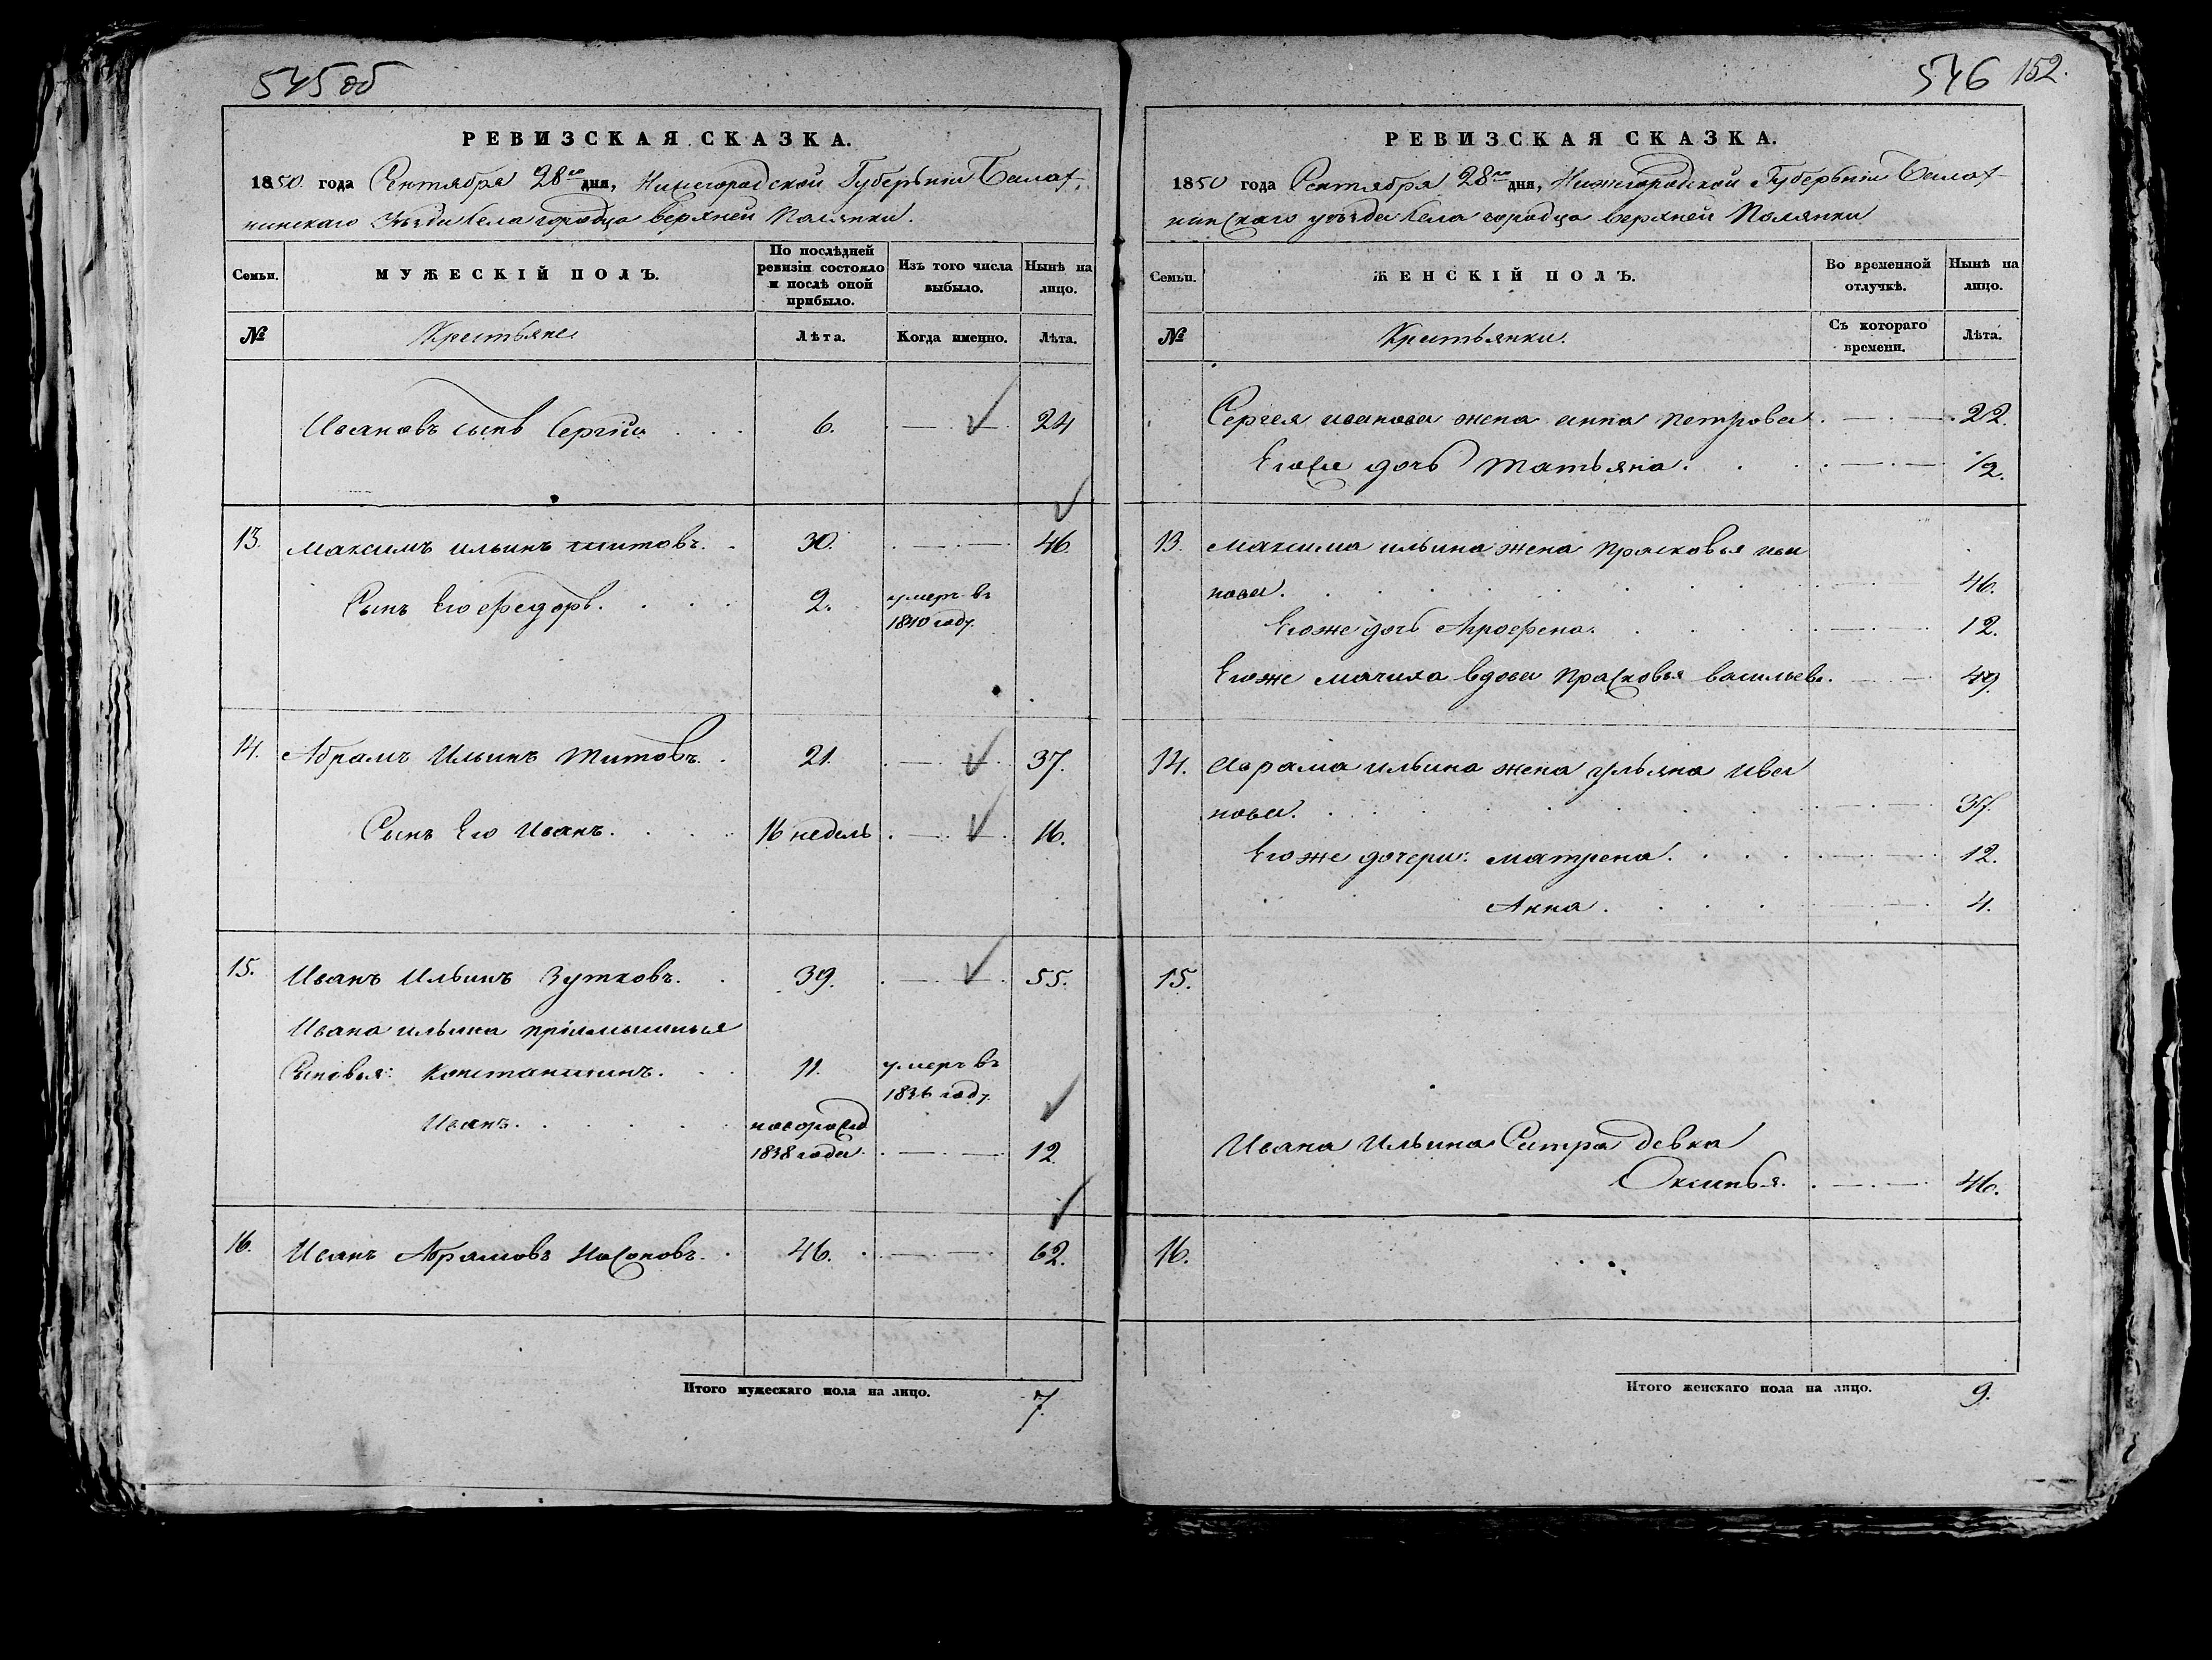 545 об
РЕВИЗСКАЯ СКАЗКА.
1850 года Сентября 28го дня, Нижегородской Губерьнiи Балах
нинскаго Уѣзда села городца верхней Полянки.
Семьи.
МУЖЕСКІЙ ПОЛЪ.
По послѣдней ревизіи состояло и послѣ оной прибыло.
Изъ того числа выбыло.
Нынѣ на лицо.
№
Крестьяне
Лѣта.
Когда именно.
Лѣта.
Ивановъ сынъ Сергѣй 6. 24
13. Максимъ ильинъ титовъ. 30. 46
Сынъ Его федоръ. 2. умеръ въ
1840 году.
14. Абрамъ Ильинъ Титовъ. 21. 37.
Сынъ Его Иванъ. 16 недель 16.
15. Иванъ Ильинъ Зутковъ. 39. 55.
Ивана ильина прiимышныя
Сыновья: Константинъ. 11. умеръ въ
1836 году.
Иванъ. новорожд
1838 года. 12
16. Иванъ Абрамовъ Насоновъ. 46. 62.
Итого мужескаго пола на лицо. 7.
546 152.
РЕВИЗСКАЯ СКАЗКА.
1850 года Сентября 28го дня, Нижегородской Губерьнiи Балах
нинскаго уѣзда села городца верхней Полянки
Семьи.
ЖЕНСКІЙ ПОЛЪ.
Во временной отлучкѣ.
Нынѣ на лицо.
№
Крестьянки.
Съ котораго времени.
Лѣта.
Сергея иванова жена анна петрова 22.
Егоже дочь Татьяна. 1/2.
13. Максима ильина жена прасковья ива
нова. 46.
Егоже дочь Агрофена. 12.
Егоже мачиха вдова прасковья васильев. 49.
14. Аврама ильина жена ульяна ива
нова. 37.
Егоже дочери: матрена. 12.
Анна. 4.
15.
Ивана Ильина Систра девка
Оксинья. 46.
16.
Итого женскаго пола на лицо. 9.